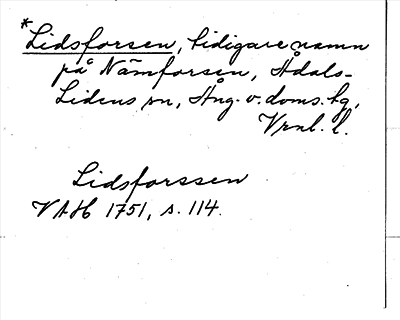 *Lidsforsen, tidigare namn
på Nämforsen, Ådals-
Lidens sn, Ång. v. doms. tg,
Vrnl. l.
Lidsforssen
VAH 1751, s. 114.